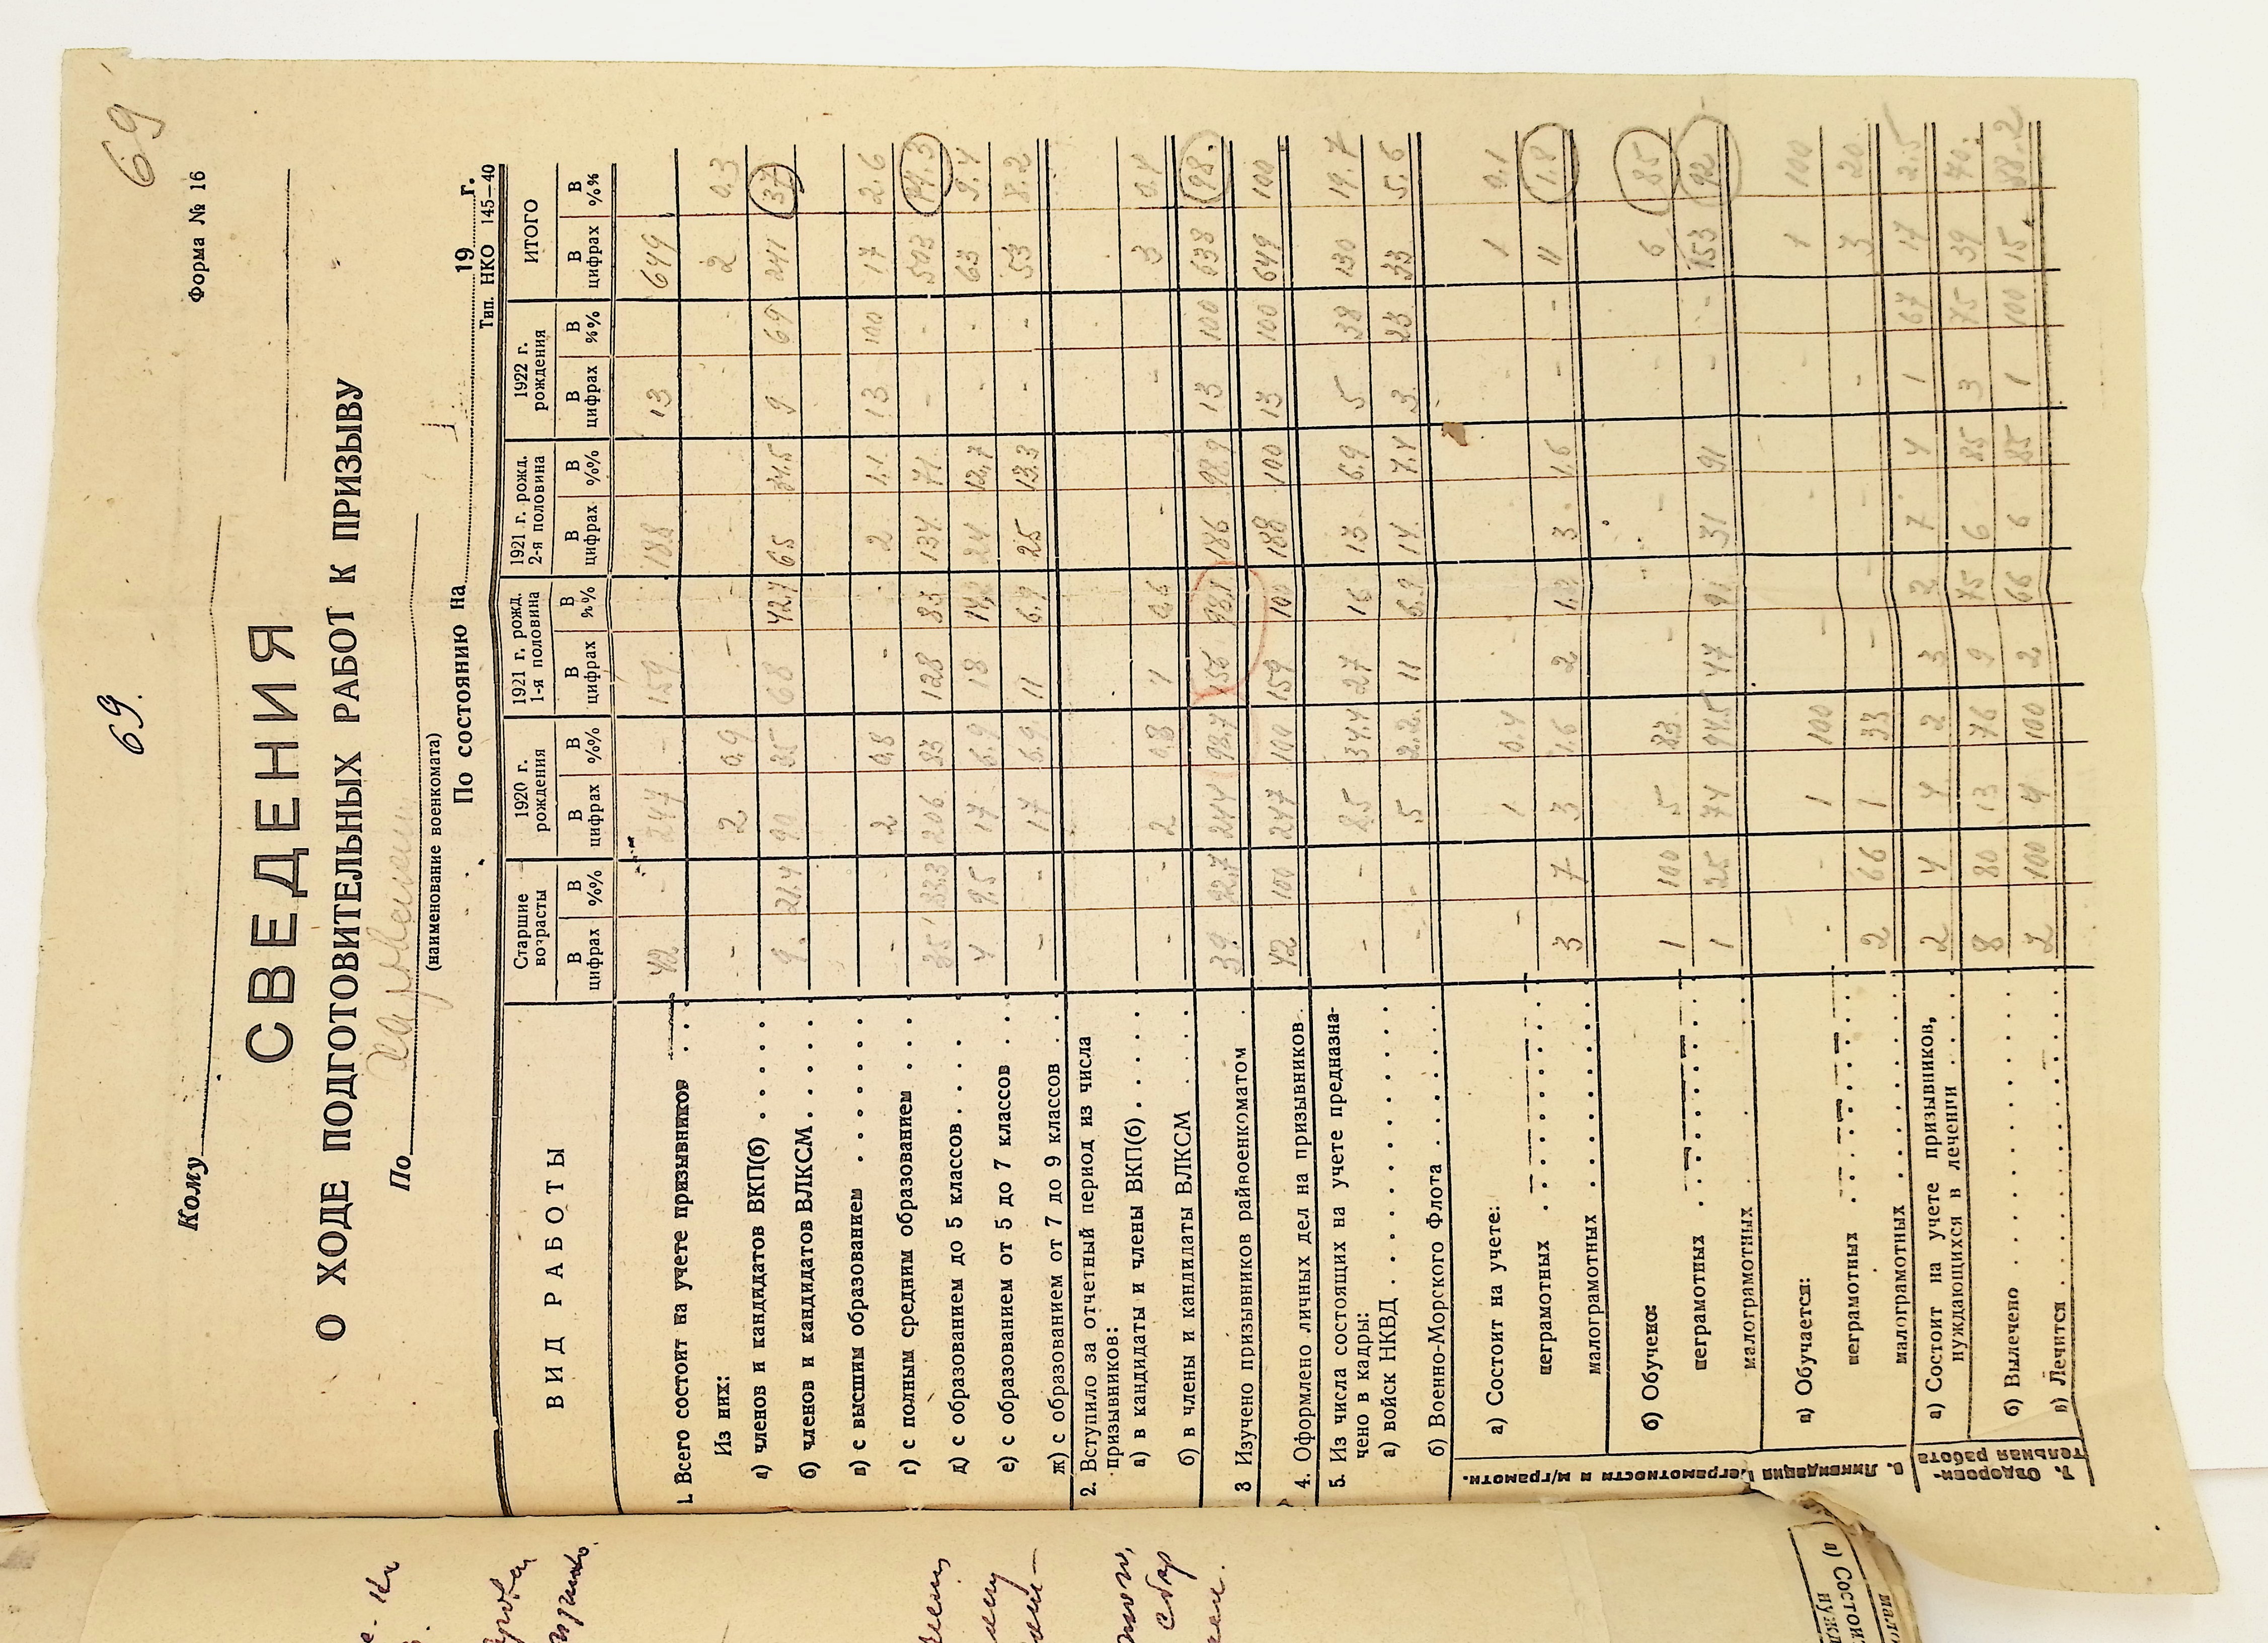 69
69.
Форма № 16
Кому
СВЕДЕНИЯ
О ХОДЕ ПОДГОТОВИТЕЛЬНЫХ РАБОТ К ПРИЗЫВУ
По
(наименование военкомата)
По состоянию на 19 г.
Тип. НКО 145—40
ВИД РАБОТЫ Старшие возрасты 1920 г. рождения 1921 г. рожд. 1-я половина 1921 г. рожд. 2-я половина 1922 г. рождения ИТОГО
В цифрах В %% В цифрах В %% В цифрах В %% В цифрах В %% В цифрах В %% В цифрах В %%
1. Всего состоит на учете призывников 42 - 247 - 159 188 13 649
Из них:
а) членов и кандидатов ВКП(б) - 2 0,9 - - - 2 0.3
б) членов и кандидатов ВЛКСМ 9. 21.4 90 35 68 42.7 65 34.5 9 69 241 37
в) с высшим образованием - - 2 0,8 - - 2 1.1 13 100 17 2.6
г) с полным средним образованием 35 33.3 206 83 128 83 134 71 - - 503
д) с образованием до 5 классов 4 9.5 17 6.9 18 24 12,7 - - 63 9.4
е) с образованием от 5 до 7 классов - - 17 6.9 11 6.9 25 13.3 - - 53 8.2
ж) с образованием от 7 до 9 классов
2. Вступило за отчетный период из числа
призывников:
а) в кандидаты и члены ВКП(б)
б) в члены и кандидаты ВЛКСМ - - 2 0.8 1 0.6 - - - 3 0.4
3 Изучено призывников райвоенкоматом 39 92.7 244 98.7 156 98.1 186 98.9 13 100 638 98.
4. Оформлено личных дел на призывников 42 100 247 100 159 100 188 100 13 100 649 100
5. Из числа состоящих на учете предназна-
чено в кадры:
а) войск НКВД - - 85 34.4 27 16 13 6.9 5 38 130 19.7
б) Военно-Морского Флота - - 5 2.2 11 6.9 14 7.4 3 23 33 5.6
6. Ликвидация неграмотности и м/грамотн.
а) Состоит на учете:
неграмотных - 1 0.4 - - - 1 0.1
малограмотных 3 7 3 1.6 2 1.3 3 1.6 - - 11 1.8
б) Обучено:
неграмотных 1 100 5 83 - - - - - 6 85
малограмотных 1 25 74 94.5 47 91 31 91 - - 153 92
в) Обучается:
неграмотных - 1 100 - - 1 100
малограмотных 2 66 1 33 - - - 3 20
7. Оздорови-
тельная работа
а) Состоит на учете призывников,
нуждающихся в лечении 2 4 4 2 3 2 7 4 1 67 17 2.5
б) Вылечено 8 80 13 76 9 75 6 85 3 75 39 70.
в) Лечится 2 100 4 100 2 66 6 85 1 100 15 88.2